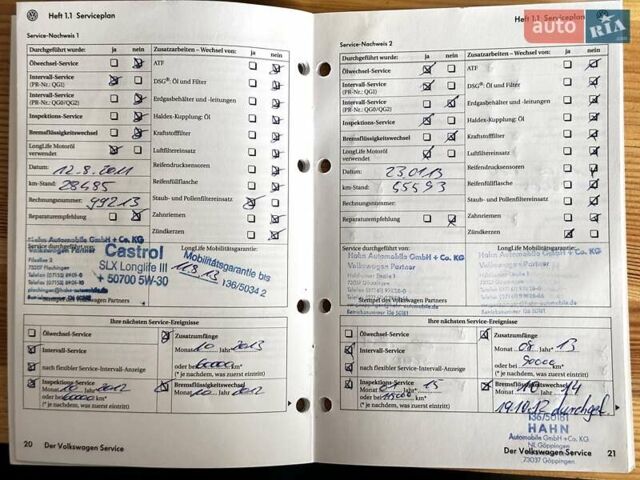 Heft 1.1 Serviceplan
Service-Nachweis 1
Durchgeführt wurde: ja nein
Ölwechsel-Service
Intervall-Service
(PR-Nr.: QG1)
Intervall-Service
(PR-Nr.: QG0/QG2)
Inspektions-Service
Bremsflüssigkeitswechsel
LongLife Motoröl
verwendet
Datum: 12.8.2011
km-Stand: 28485
Rechnungsnummer: 99213
Reparaturempfehlung
Zusatzarbeiten – Wechsel von: ja nein
ATF
DSG®: Öl und Filter
Erdgasbehälter und -leitungen
Haldex-Kupplung: Öl
Kraftstofffilter
Luftfiltereinsatz
Reifendrucksensoren
Reifenfüllflasche
Staub- und Pollenfiltereinsatz
Zahnriemen
Zündkerzen
Service durchgeführt von:
Hahn Automobile GmbH + Co. KG
Volkswagen Partner
Filialbe 2
73207 Plochingen
Castrol
SLX Longlife III
+ 50700 5W-30
LongLife Mobilitätsgarantie:
Mobilitätsgarantie bis
11.8.13
136/5034 2
Partners
Ihre nächsten Service-Ereignisse
Ölwechsel-Service
Intervall-Service
nach flexibler Service-Intervall-Anzeige
Inspektions-Service
Monat 10 Jahr 2012
oder bei 60000 km*
(* je nachdem, was zuerst eintritt)
Zusatzumfänge
Monat 10 Jahr* 2013
oder bei 60000 km*
(* je nachdem, was zuerst eintritt)
Bremsflüssigkeitswechsel
Monat 10 Jahr 2012
20 Der Volkswagen Service
Heft 1.1 Serviceplan
auto RIA
Service-Nachweis 2
Durchgeführt wurde: ja nein
Ölwechsel-Service
Intervall-Service
(PR-Nr.: QG1)
Intervall-Service
(PR-Nr.: QG0/QG2)
Inspektions-Service
Bremsflüssigkeitswechsel
LongLife Motoröl
verwendet
Datum: 23.01.13
km-Stand: 65593
Rechnungsnummer:
Reparaturempfehlung
Zusatzarbeiten – Wechsel von: ja nein
ATF
DSG®: Öl und Filter
Erdgasbehälter und -leitungen
Haldex-Kupplung: Öl
Kraftstofffilter
Luftfiltereinsatz
Reifendrucksensoren
Reifenfüllflasche
Staub- und Pollenfiltereinsatz
Zahnriemen
Zündkerzen
Service durchgeführt von:
Hahn Automobile GmbH + Co. KG
Volkswagen Partner
73037 Göppingen
LongLife Mobilitätsgarantie:
Stempel des Volkswagen Partners
Ihre nächsten Service-Ereignisse
Ölwechsel-Service
Intervall-Service
nach flexibler Service-Intervall-Anzeige
Inspektions-Service
Monat Jahr 15
oder bei km*
(* je nachdem, was zuerst eintritt)
Zusatzumfänge
Monat 08 Jahr* 13
oder bei 90000 km*
(* je nachdem, was zuerst eintritt)
Bremsflüssigkeitswechsel
Monat 10 14
19.10.12 durchgef.
136/50181
HAHN
Automobile GmbH +Co. KG
NL Göppingen
73037 Göppingen
Der Volkswagen Service 21